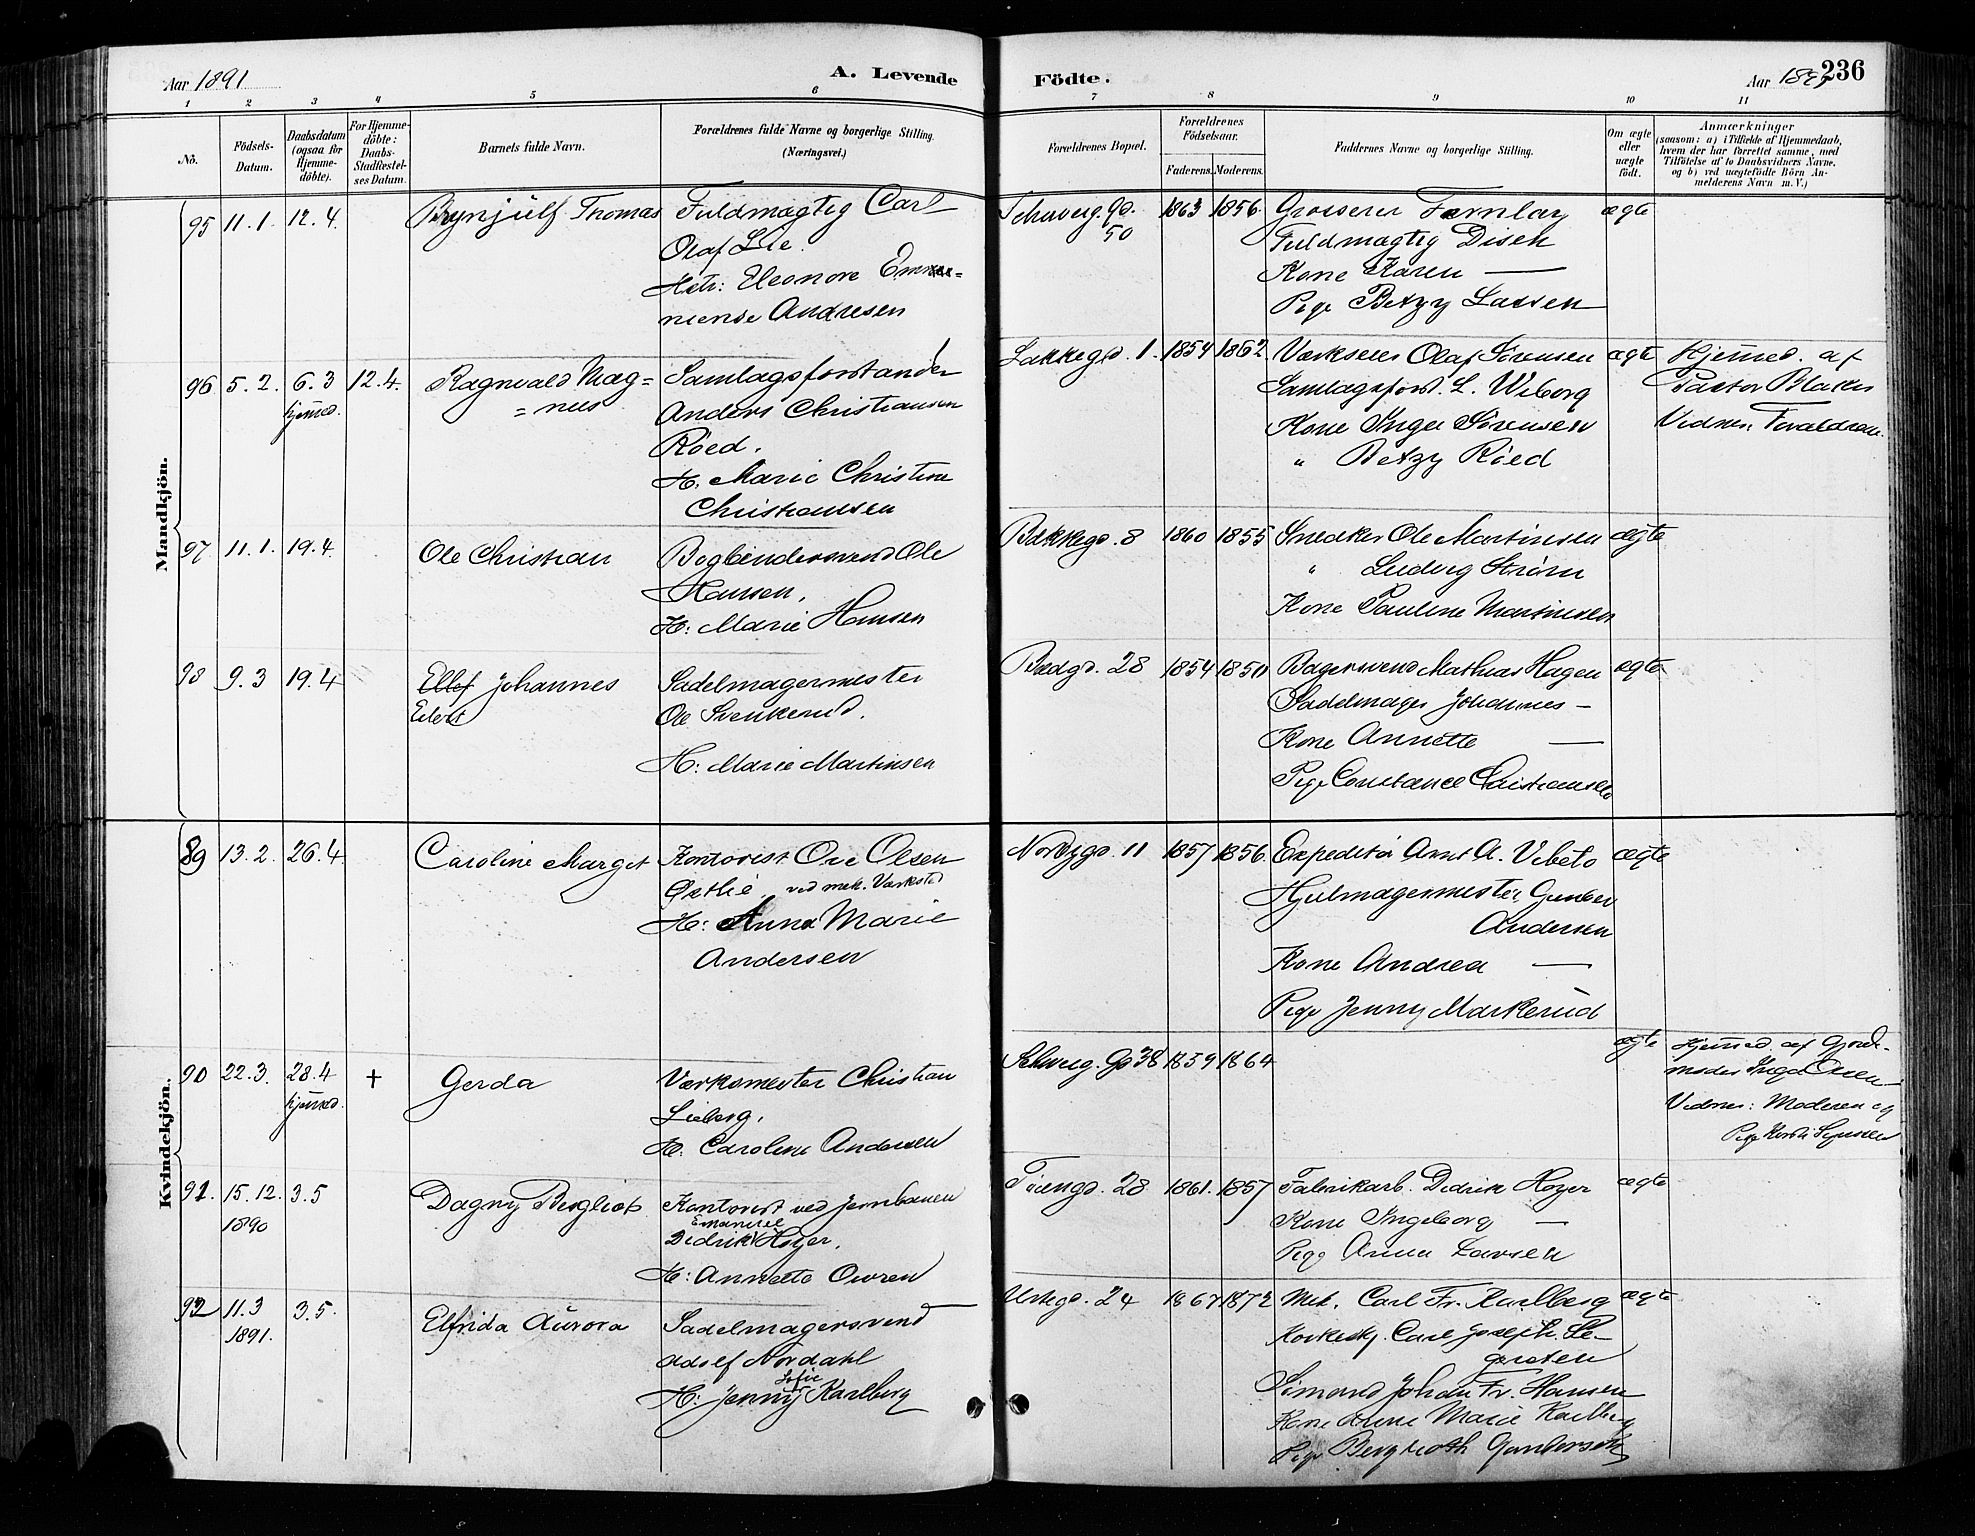 Aar 1891
A. Levende
Födte.
Aar 1891
236
1 2 3 4 5 6 7 8 9 10 11
No.
Födsels-
Datum.
Daabsdatum
(ogsaa for
Hjemme-
döbte).
For Hjemme-
döbte:
Daabs-
Stadfæstel-
ses Datum.
Barnets fulde Navn.
Forældrenes fulde Navne og borgerlige Stilling.
(Næringsvei.)
Forældrenes Bopæl.
Forældrenes
Födselsaar.
Faderens. Moderens.
Faddernes Navne og borgerlige Stilling.
Om ægte
eller
uægte
födt.
Anmærkninger
(saasom: a) i Tilfælde af Hjemmedaab,
hvem der har forrettet samme, med
Tilföielse af to Daabsvidners Navne,
og b) ved uægtefödte Börn An-
melderens Navn m. V.)
Mandkjön.
95 11.1. 12.4. Brynjulf Thomas Fuldmægtig Carl
Olaf Lie.
Hstr: Eleonore Emme=
niense Andresen
Schweig. Gd. 50 1863 1856. Grosserer Færnley ægte
Fuldmægtig Disen
Kone Karen —
Pige Betzy Lassen
96 5.2. 6.3 hjemmed. 12.4. Ragnvald Mag=
= nus
Samlagsforstander
Anders Christiansen
Röed.
H: Marie Christine
Christiansen
Lakkegd. 1. 1854 1862 Værkseier Olaf Sörensen ægte Hjemmed. af
Samlagsforst. L. Wiborg Pastor Blaker
Kone Inga Sörensen Vidner: Forældrene.
" Betzy Röed
97 11.1. 19.4. Ole Christian Bogbindersvend Ole
Hansen.
H: Marie Hansen
Bakkegd. 8 1860 1855 Snedker Ole Martinsen ægte
" Ludvig Ström
Kone Pauline Martinsen
98 9.3 19.4 Ellef Johannes
Edert
Sadelmagermester
Ole Svenkerud.
H: Marie Martinsen
Bredgd. 28 1854 1850 Bagersvend Mathias Hagen ægte
Sadelmager Johannes —
Kone Annette —
Pige Constance Christiansen
Kvindekjön.
89 13.2. 26.4 Caroline Margit Kontorist Ove Olsen
Östlie ved mek. Værksted
H: Anna Marie
Andersen
Nordbygd. 11 1857 1856. Expeditör Arnt A. Vibeto ægte
Hjulmagermester Gunder
Andersen
Kone Andrea —
Pige Jenny Markerud
90 22.3. 28.4 hjemmed. + Gerda Værksmester Christian
Lieberg.
H: Caroline Andersen
Schweig. Gd 38 1859 1864 ægte Hjemmed. af Gjord-
moder Inga Olsen
Vidner: Moderen og
91. 15.12. 1890 3.5 Dagny Bergliot Kontorist ved Jernbanen
Emanuel
Didrik Höyer.
H: Annette Owren
Töiengd. 28 1861. 1857 Fabrikarb. Didrik Höyer ægte
Kone Ingeborg —
Pige Anna Larsen
92 11.3 1891. 3.5. Elfrida Aurora Sadelmagersvend
Adolf Nordahl
Sofie
H: Jenny Karlberg
Urtegd. 24 1867 1872 Mek. Carl Fr. Karlberg ægte
Korkeskj. Carl Joseph Se-
gersten
Sömand Johan Fr. Hansen
Kone Anne Marie Karlberg
Pige Berglioth Gundersen